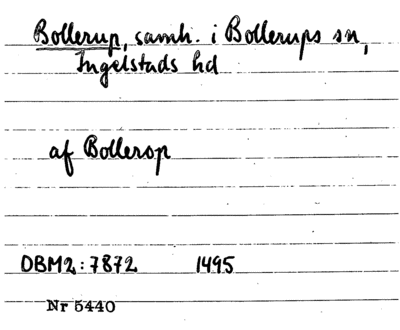 Bollerup, samh. i Bollerups sn,
Ingelstads hd
af Bollerop
DBM2:7872 1495
Nr 5440